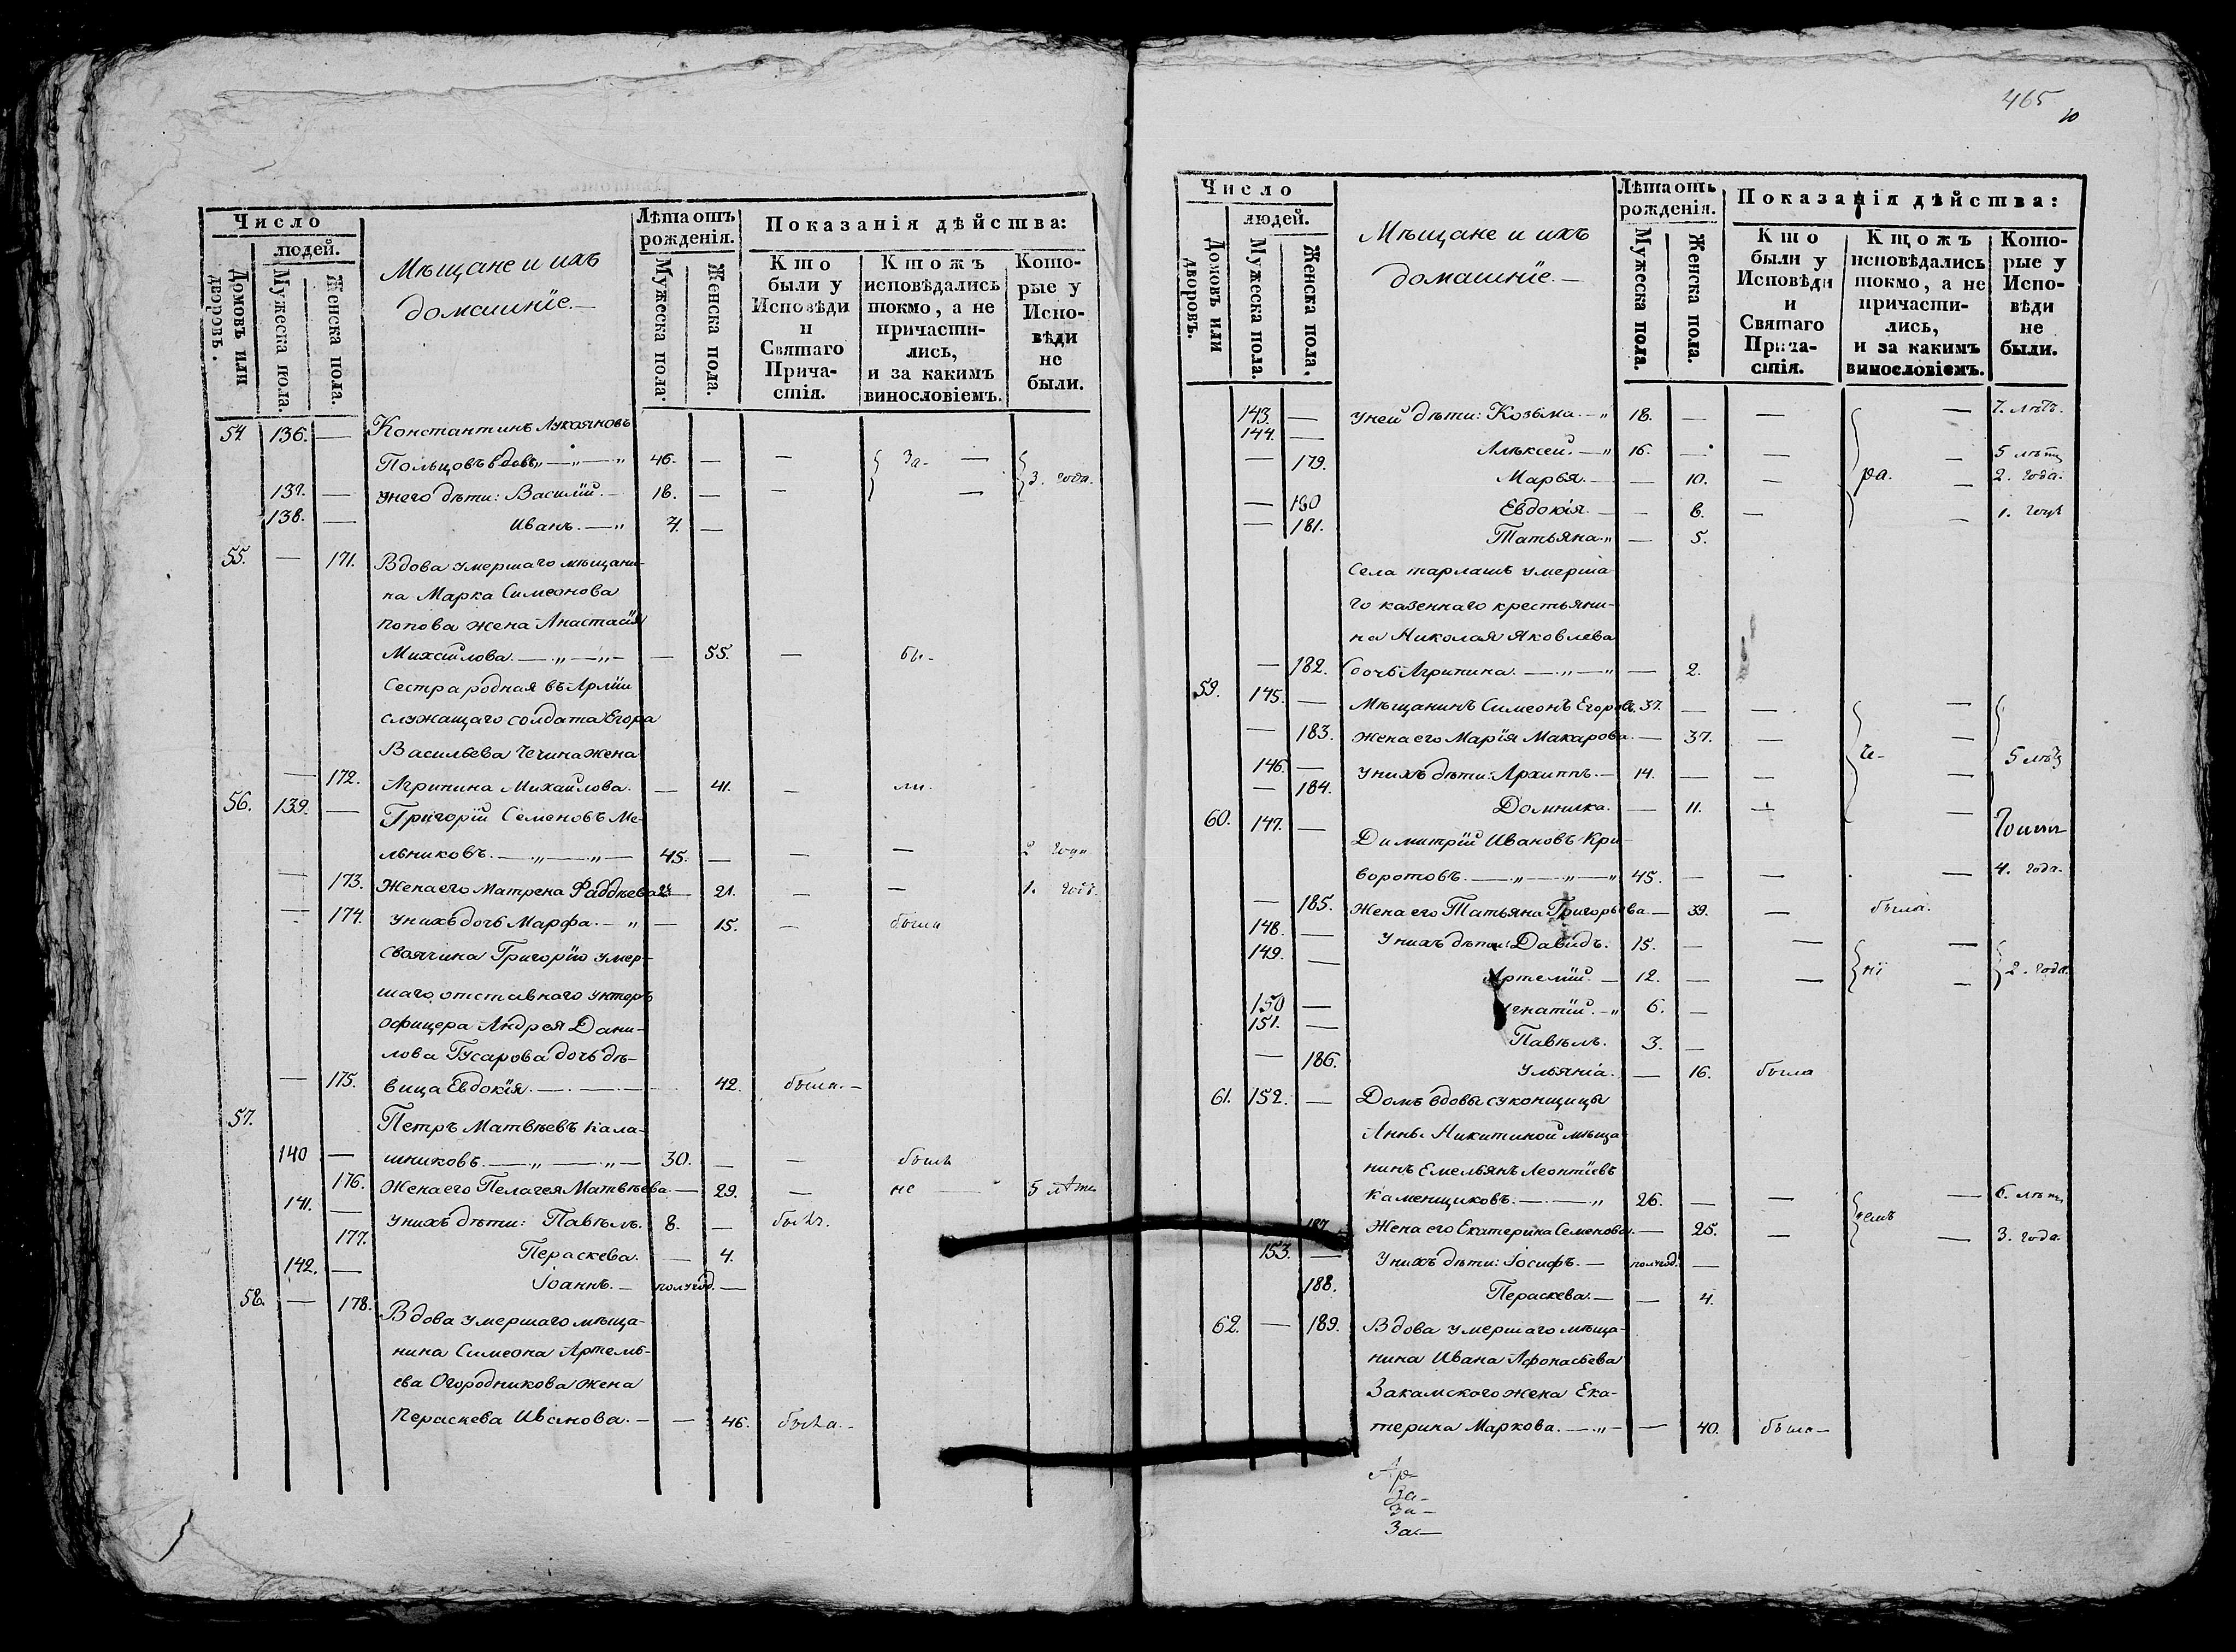 Число
людей.
Домовъ или дворовъ.
Мужеска пола.
Женска пола.
Мѣщане и ихъ
домашніе.—
Лѣта отъ
рожденія.
Мужеска пола.
Женска пола.
Показанія дѣйства:
Кто
были у
Исповѣди
и
Святаго
Прича-
стія.
Ктожъ
исповѣдались
токмо, а не
причасти-
лись,
и за какимъ
винословіемъ.
Кото-
рые у
Испо-
вѣди
не
были.
54 136. — Константинъ Лукояновъ
Польцовъ вдовъ „ — „ — „ 46. — — За- —
3. года.
137. — У него дѣти: Василій. — 18. — — —
138. — Иванъ. — „ 7. —
55. — 171. Вдова умершаго мѣщани-
на Марка Симеонова
Попова жена Анастасія
Михайлова. — „ — „ — — 55. — бы-
Сестра родная въ Арміи
служащаго солдата Егора
Васильева Чечина жена
— 172. Агрипина Михайлова. — 41. — ли.
56. 139. — Григорій Семеновъ Ме-
льниковъ. — „ — „ — 45. — — — 2 года
— 173. Жена его Матрена Фаддѣева — 21. — — 1. годъ.
— 174. У нихъ дочь Марфа. — „ — 15. — была
Своячина Григорію умер-
шаго отставнаго унтеръ
офицера Андрея Дани-
лова Гусарова дочь дѣ-
— 175. вица Евдокія. — . — . — 42. была. —
57. Петръ Матвѣевъ Кала-
140 — шниковъ. — „ — „ — 30. — — былъ
176. Жена его Пелагея Матвѣева. — 29. — не — 5 лѣтъ
141. — У нихъ дѣти: Павелъ. 8. — былъ.
177. Параскева. — 4.
142. — Іоаннъ. — полгод. —
58. — 178. Вдова умершаго мѣща-
нина Симеона Артемь-
ева Огородникова жена
Параскева Иванова. — — 46. была. —
465
10
Число
людей.
Домовъ или дворовъ.
Мужеска пола.
Женска пола.
Мѣщане и ихъ
домашніе. —
Лѣта отъ
рожденія.
Мужеска пола.
Женска пола.
Показанія дѣйства:
Кто
были у
Исповѣди
и
Святаго
Прича-
стія.
Ктожъ
исповѣдались
токмо, а не
причасти-
лись,
и за какимъ
винословіемъ.
Кото-
рые у
Испо-
вѣди
не
были.
143. — У ней дѣти: Козьма. — „ 18. — — — 7. лѣтъ.
144. — Алексѣй. — „ 16. — — — 5 лѣтъ
— 179. Марья. — — 10. — ра. — 2. года.
— 180 Евдокія. — — 8. — — 1. годъ
— 181. Татьяна. „ — 5.
Села тарлашъ умерша
го казеннаго крестьяни-
на Николая Яковлева
— 182. дочь Агрипина. — „ — „ — 2.
59. 145. — Мѣщанинъ Симеонъ Егоровъ. 37. — — —
— 183. Жена его Марія Макарова. — 37. — че- — 5 лѣтъ
146. — У нихъ дѣти: Архиппъ. — 14. — — —
— 184. Домника. — 11. — —
60. 147. — Димитрій Ивановъ Кри-
воротовъ. — „ — „ — „ 45. — — — 4. года.
— 185. Жена его Татьяна Григорьева. — 39. — была.
148. — У нихъ дѣти: Давидъ. 15. — — —
149. — Артемій. — 12. — — ні — 2. года.
150 — Игнатій. — „ 6. —
151. — Павелъ. 3. —
— 186. Ульянія. — 16. была
61. 152. — Домъ вдовы суконщицы
Анны Никитиной мѣща
нинъ Емельянъ Леонтіевъ
Каменщиковъ. — . — „ 26. — — — 6. лѣтъ
187. Жена его Екатерина Семенова. — 25. — емъ — 3. года.
153. — У нихъ дѣти: Іосифъ. — полгод. —
188. Параскева. — — 4.
62. — 189. Вдова умершаго мѣща-
нина Ивана Афонасьева
Закамскаго жена Ека-
терина Маркова. — „ — — 40. была —
За-
За-
За —